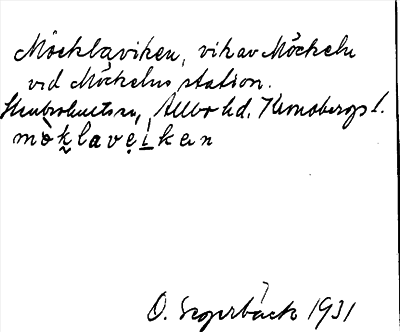 Möcklaviken, vik av Möckeln
vid Möckelns station.
Stenbrohults sn, Allbo hd. Kronobergs l.
mòk̬lavẹi̱ken
O. 1931